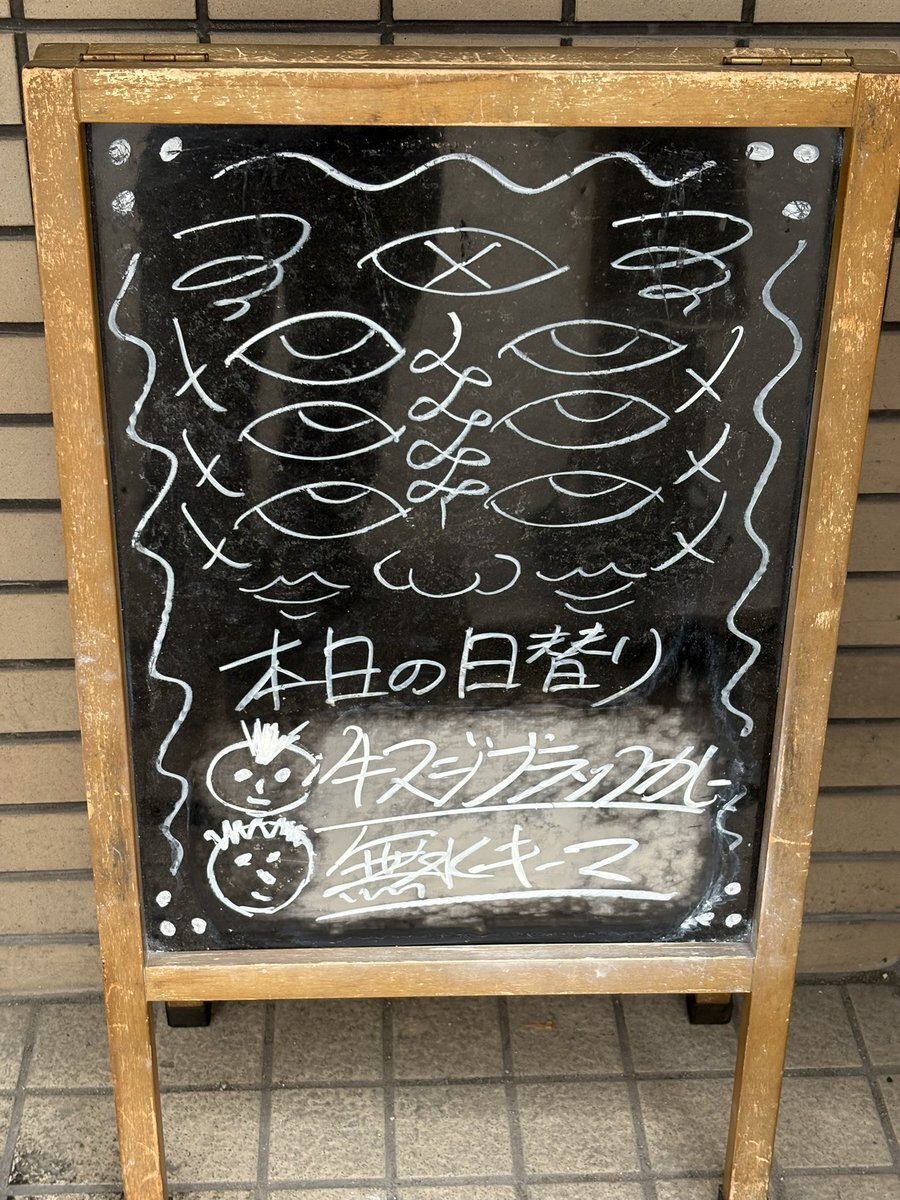 本日の日替り
牛スジブラックカレー
無水キーマ